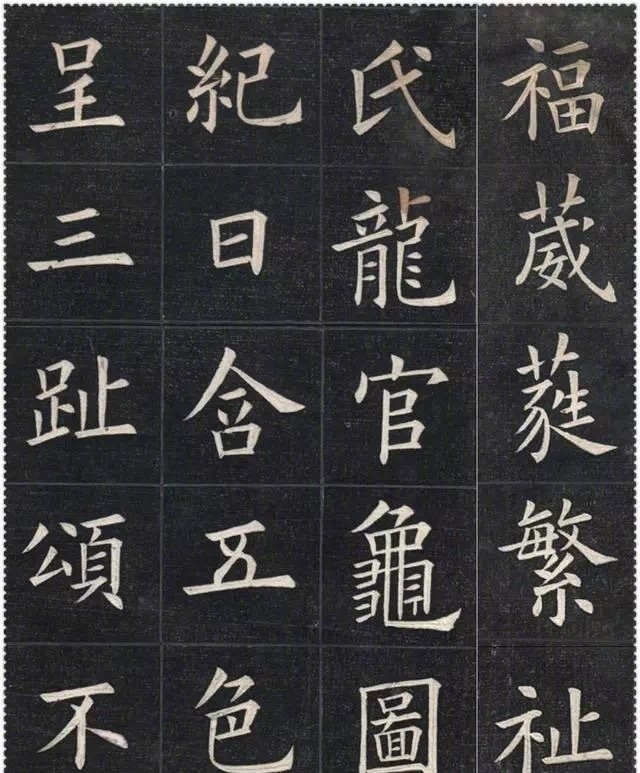 福葳蕤繁祉
氏龍官龜圖
紀日含五色
呈三趾頌不